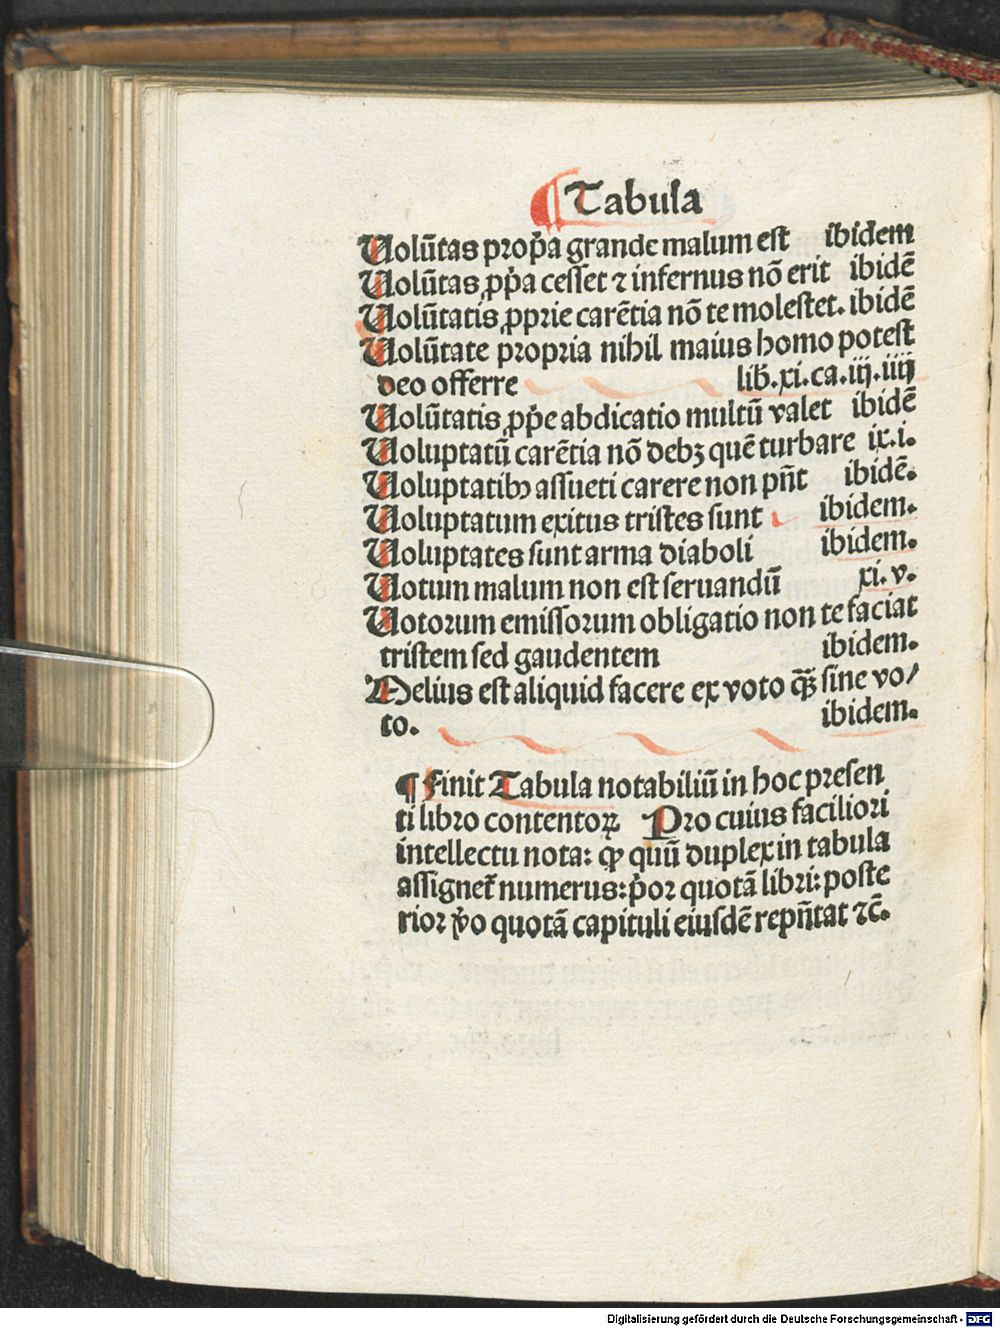 ¶ Tabula
Uolūtas propͥa grande malum est ibidem
Uolūtas ꝓpͥa cesset ⁊ infernus nō erit ibidē
Uolūtatis ꝓprie carētia nō te molestet. ibidē
Uolūtate propria nihil maius homo potest
deo offerre lib̄.xi.ca.iij.iiij
Uolūtatis ꝓpͥe abdicatio multū valet ibidē
Uoluptatū carētia nō debꝫ quē turbare ix.i.
Uoluptatibꝰ assueti carere non pn̄t ibidē.
Uoluptatum exitus tristes sunt ibidem.
Uoluptates sunt arma diaboli ibidem.
Uotum malum non est seruandū xi. v.
Uotorum emissorum obligatio non te faciat
tristem sed gaudentem ibidem.
Melius est aliquid facere ex voto qͣꝫ sine vo/
to. ibidem.
¶ Finit Tabula notabiliū in hoc presen
ti libro contentoꝝ Pro cuius faciliori
intellectu nota: ꝙ quū duplex in tabula
assignet̄ numerus: pͥor quotā libri: poste
rior ꝟo quotā capituli eiusdē repn̄tat ⁊c̄.
Digitalisierung gefördert durch die Deutsche Forschungsgemeinschaft - DFG